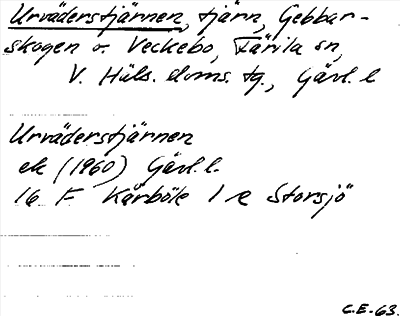 Urväderstjärnen, tjärn, Gebbar-
skogen o. Veckebo, Färila sn,
V. Häls. doms. tg., Gävl. l
Urväderstjärnen
ek (1960) Gävl. l.
16 F Kårböle 1 e Storsjö
C.E-63.